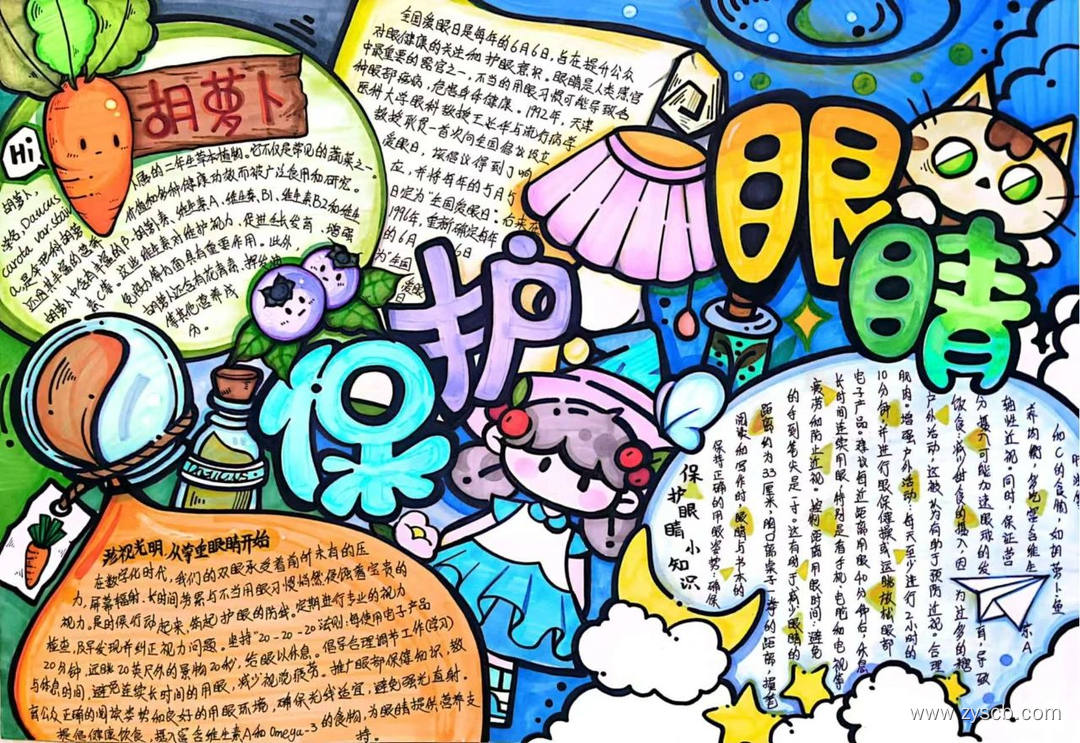 胡萝卜
Hi
胡萝卜,
学名:Daucus
carota var.sativ
卜属的二年生草本植物。它不仅是常见的蔬菜之一,
健康功效而被广泛食用和研究。
β-胡萝卜素、维生素A、维生素B1、维生素B2和维生
素C等。这些维生素对维护视力,促进生长发育,增强
免疫力等方面具有重要作用。此外
胡萝卜还含有
等其他营养成
分。
全国爱眼日是每年的6月6日,旨在提升公众
对眼健康的关注和护眼意识,眼睛是人类感官
中最重要的器官之一,不当的用眼习惯可能导致各
种眼部疾病,危患身体健康。1992年,天津
医科大学眼科教授王延华与流行病学
教授耿贯一首次向全国倡议设立
爱眼日,该倡议得到了响
应,并将每年的5月
日定为“全国爱眼日。后来在
1996年,重新确定每年
的6月6日
为“全国
爱眼
日
保护眼睛
珍视光明,从学生眼睛开始
在数字化时代,我们的双眼承受着前所未有的压
力,屏幕辐射、长时间劳累与不当用眼习惯悄然侵蚀着宝贵的
视力,是时候行动起来,筑起护眼的防线。定期进行专业的视力
检查,及早发现并纠正视力问题。坚持“20-20-20法则:每使用电子产品
20分钟,远眺20英尺外的景物20秒,给眼以休息。倡导合理调节工作(学习)
与休息时间,避免连续长时间的用眼,减少视觉疲劳。推广眼部保健知识,教
育公众正确的阅读姿势和良好的用眼环境,确保光线适宜,避免强光直射。
提倡健康饮食,摄入富含维生素A和Omega-3的食物,为眼睛提供营养支
持。
和C的食物,如胡萝卜、鱼
养均衡,多吃富含维生素A
轴性近视。同时,保证营
分摄入可能加速眼球的发育,导致
饮食:减少甜食的摄入,因为过多的糖
户外活动,这被认为有助于预防近视。合理
肌肉。增强户外活动:每天至少进行2小时的
10分钟,并进行眼保健操或远眺放松眼部
电子产品,建议每近距离用眼40分钟后,休息
长时间连续用眼,特别是看手机、电脑和电视等
疲劳和防止近视。控制近距离用眼时间:避免
的手到笔尖是一寸。这有助于减少眼睛的
距离约为33厘米,胸口离桌子一拳的距离,握笔
阅读和写作时,眼睛与书本的
保持正确的用眼姿势,确保
保护眼睛小知识
www.zyscb.com